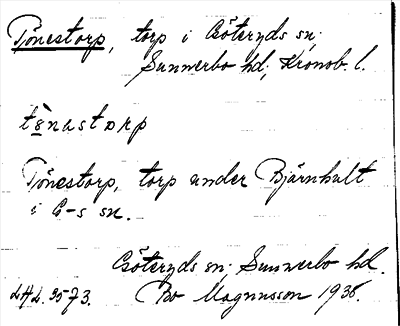 Tönestorp, torp i Göteryds sn;
Sunnerbo hd; Kronob. l.
tö̀nastorp
Tönestorp, torp under Björnhult
i G-s sn.
Göteryds sn; Sunnerbo hd.
Bo Magnusson 1936.